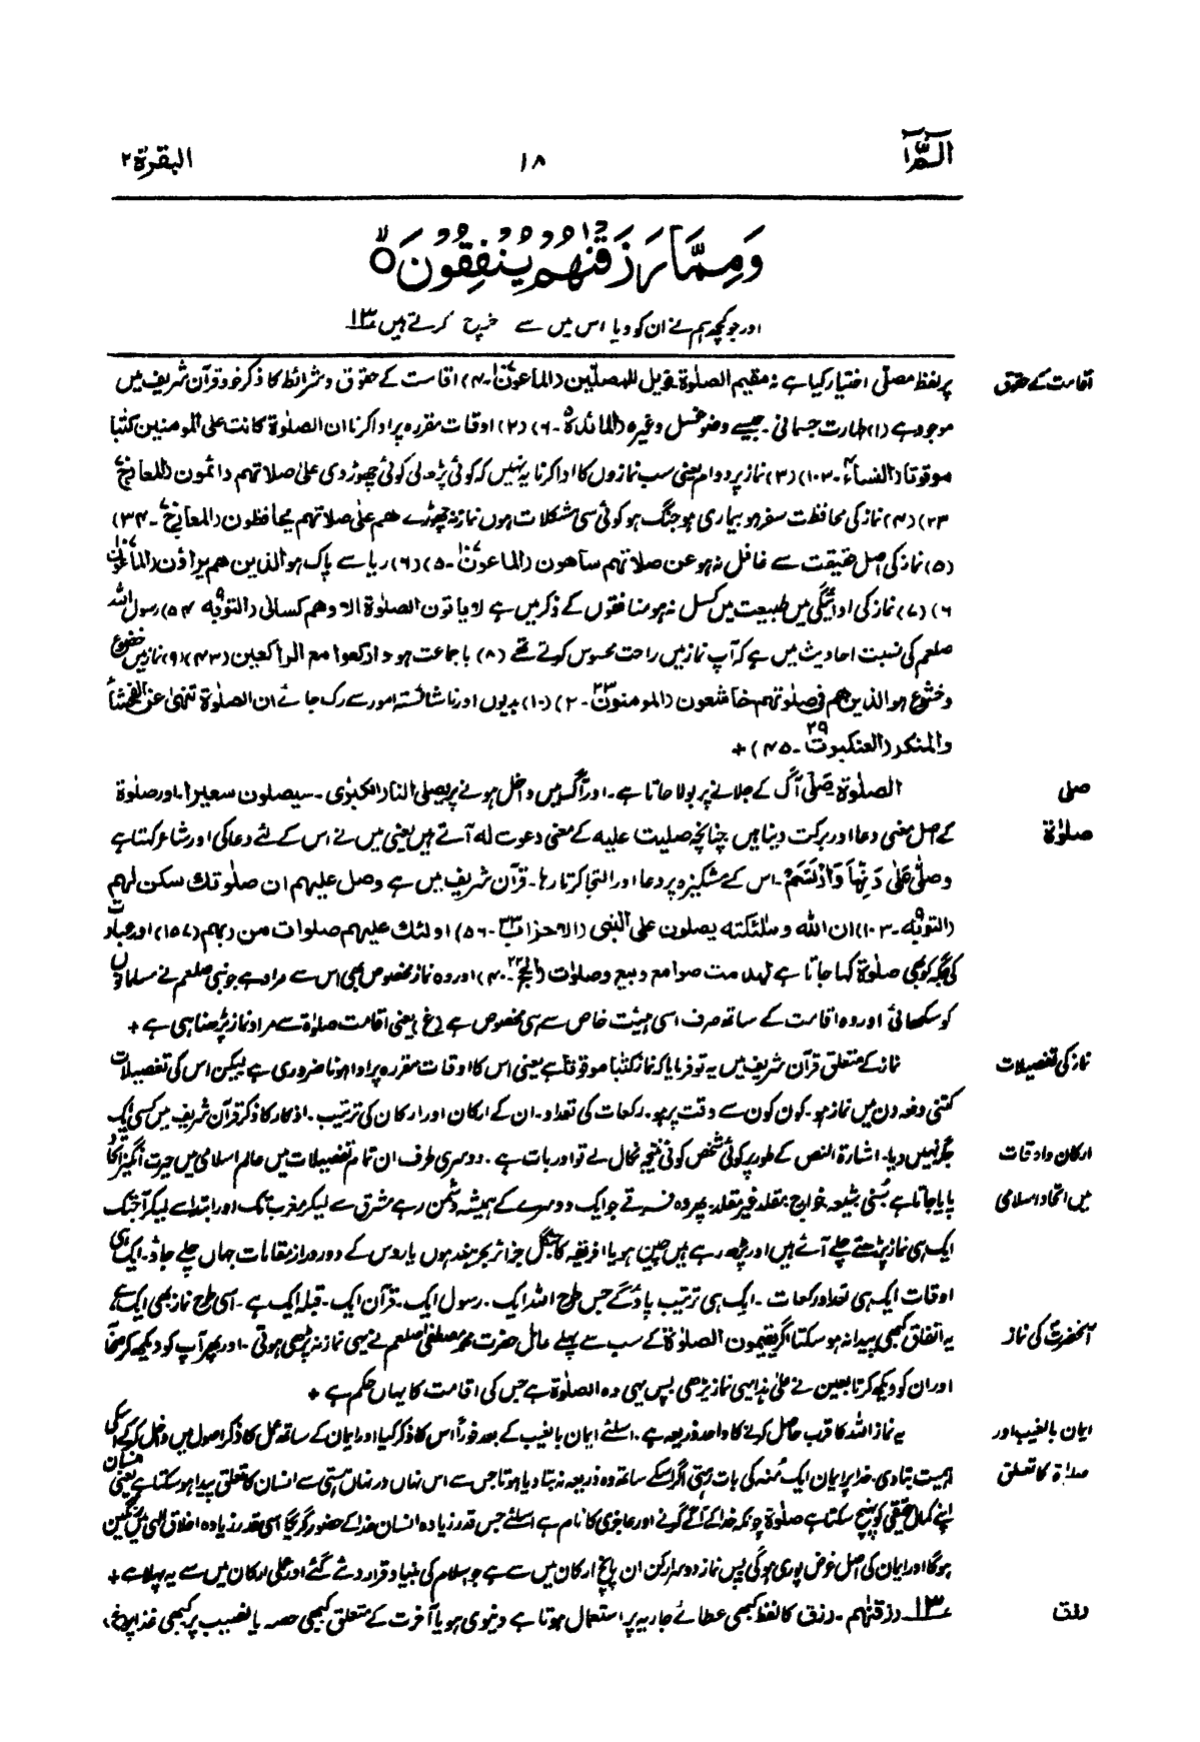 الٓمّٓ ١
١٨
البقرة ٢
وَمِمَّا رَزَقْنٰهُمْ يُنْفِقُوْنَ ۙ
اور جو کچھ ہم نے ان کو دیا اس میں سے خرچ کرتے ہیں ١٣
اقامت کے حقوق
پر لفظ مصلّی اختیار کیا ہے نہ مقیم الصلوٰۃ فویل للمصلین (الماعون ١٠٧-٤) اقامت کے حقوق و شرائط کا ذکر خود قرآن شریف میں
موجود ہے (١) طہارت جسمانی۔ جیسے وضو غسل وغیرہ (المائدہ ٥-٦) (٢) اوقات مقررہ پر ادا کرنا ان الصلوٰۃ کانت علی المومنین کتٰبا
موقوتا (النساء ٤-١٠٣) (٣) نماز پر دوام یعنی سب نمازوں کا ادا کرنا یہ نہیں کہ کوئی پڑھ لی کوئی چھوڑ دی علیٰ صلاتہم دائمون (المعارج
٢٣) (٤) نماز کی محافظت سفر ہو بیماری ہو جنگ ہو کوئی سی مشکلات ہوں نماز نہ چھوڑے ھم علیٰ صلاتہم یحافظون (المعارج-٣٤)
(٥) نماز کی اصل حقیقت سے غافل نہ ہو عن صلاتہم ساھون (الماعون ١٠٧-٥) (٦) ریا سے پاک ہو الذین ھم یراؤن (الماعون ١٠٧
٦) (٧) نماز کی ادائیگی میں طبیعت میں کسل نہ ہو منافقوں کے ذکر میں ہے لا یاتون الصلوٰۃ الا وھم کسالیٰ (التوبہ ٩-٥٤) رسول اللہ
صلعم کی نسبت احادیث میں ہے کہ آپ نماز میں راحت محسوس کرتے تھے (٨) باجماعت ہو وارکعوا مع الراکعین (٤٣) (٩) نماز میں خضوع
و خشوع ہو الذین ھم فی صلوٰتہم خاشعون (المومنون ٢٣-٢) (١٠) بدیوں اور ناشائستہ امور سے رک جائے ان الصلوٰۃ تنھیٰ عن الفحشاء
والمنکر (العنکبوت ٢٩-٤٥) +
صلی
الصلوٰۃ صَلٰی آگ کے جلانے پر بولا جاتا ہے۔ اور آگ میں داخل ہونے پر یصلی النار الکبریٰ۔ سیصلون سعیرا۔ اور صلوٰۃ
صلوٰۃ
کے اصل معنی دعا اور برکت دینا ہیں چنانچہ صلیت علیہ کے معنی دعوت لہ آتے ہیں یعنی میں نے اس کے لئے دعا کی اور شاعر کہتا ہے
وصلّٰی علیٰ دَنِّہا وَارْتَسَمْ۔ اس کے مشکیزہ پر دعا اور التجا کرتا رہا۔ قرآن شریف میں ہے وصل علیہم ان صلوٰتك سکن لہم
(التوبہ ٩-١٠٣) ان اللہ وملٰئکتہ یصلون علی النبی (الاحزاب ٣٣-٥٦) اولٰئك علیہم صلوات من ربہم (١٥٧) اور عبادت
کی جگہ کو بھی صلوٰۃ کہا جاتا ہے لہدمت صوامع وبیع وصلوٰت (الحج ٢٢-٤٠) اور وہ نماز مخصوص بھی اس سے مراد ہے جو نبی صلعم نے مسلمانوں
کو سکھائی اور وہ اقامت کے ساتھ صرف اسی ہیئت خاص سے ہی مخصوص ہے (غ) یعنی اقامت صلوٰۃ سے مراد نماز پڑھنا ہی ہے +
نماز کی تفصیلات
نماز کے متعلق قرآن شریف میں یہ تو فرمایا کہ نماز کتٰبا موقوتا ہے یعنی اس کا اوقات مقررہ پر ادا ہونا ضروری ہے لیکن اس کی تفصیلات
کتنی دفعہ دن میں نماز ہو۔ کون کون سے وقت پر ہو۔ رکعات کی تعداد۔ ان کے ارکان اور ارکان کی ترتیب۔ اذکار کا ذکر قرآن شریف میں کسی ایک
ارکان و اوقات
جگہ نہیں دیا۔ اشارۃ النص کے طور پر کوئی شخص کوئی نتیجہ نکال لے تو اور بات ہے۔ دوسری طرف ان تمام تفصیلات میں عالم اسلامی میں حیرت انگیز اتحاد
میں اتحاد اسلامی
پایا جاتا ہے سُنی شیعہ خوارج۔ مقلد غیر مقلد۔ پھر وہ فرقے جو ایک دوسرے کے ہمیشہ دشمن رہے مشرق سے لیکر مغرب تک اور ابتدا سے لیکر آجتک
ایک ہی نماز پڑھتے چلے آئے ہیں اور پڑھ رہے ہیں چین ہو یا افریقہ کا جنگل جزائر بحر ہند ہوں یا روس کے دور دراز مقامات جہاں چلے جاؤ۔ ایک ہی
اوقات ایک ہی تعداد رکعات۔ ایک ہی ترتیب پاؤ گے جس طرح اللہ ایک۔ رسول ایک۔ قرآن ایک۔ قبلہ ایک ہے۔ اسی طرح نماز بھی ایک ہے
آنحضرتؐ کی نماز
یہ اتفاق کبھی پیدا نہ ہو سکتا اگر یقیمون الصلوٰۃ کے سب سے پہلے عامل حضرت محمد مصطفیٰ صلعم نے یہی نماز نہ پڑھی ہوتی۔ اور پھر آپ کو دیکھ کر صحابہ
اور ان کو دیکھ کر تابعین نے علیٰ ہذا یہی نماز پڑھی پس یہی وہ الصلوٰۃ ہے جس کی اقامت کا یہاں حکم ہے +
ایمان بالغیب اور
یہ نماز اللہ کا قرب حاصل کرنے کا واحد ذریعہ ہے۔ اسلئے ایمان بالغیب کے بعد فوراً اس کا ذکر کیا اور ایمان کے ساتھ عمل کا ذکر اصول میں داخل کر کے اس کی
صلاۃ کا تعلق
اہمیت بتا دی۔ خدا پر ایمان ایک مُنہ کی بات رہتی اگر اسکے ساتھ وہ ذریعہ نہ بتا دیا ہوتا جس سے اس نہاں در نہاں ہستی سے انسان کا تعلق پیدا ہو سکتا ہے یعنی انسان
اپنے کمال حقیقی کو پہنچ سکتا ہے صلوٰۃ چونکہ خدا کے آگے گرنے اور عاجزی کا نام ہے اسلئے جس قدر زیادہ انسان خدا کے حضور گریگا اسی قدر زیادہ اخلاق الٰہی میں رنگین
ہوگا اور ایمان کی اصل غرض پوری ہوگی پس نماز دوسرا رکن ان پانچ ارکان میں سے ہے جو اسلام کی بنیاد قرار دئے گئے اور عملی ارکان میں سے یہ پہلا ہے +
رزق
١٣ رزقنٰہم۔ رزق کا لفظ کبھی عطائے جاریہ پر استعمال ہوتا ہے دنیوی ہو یا آخرت کے متعلق کبھی حصہ یا نصیب پر کبھی غذا پر (غ)،